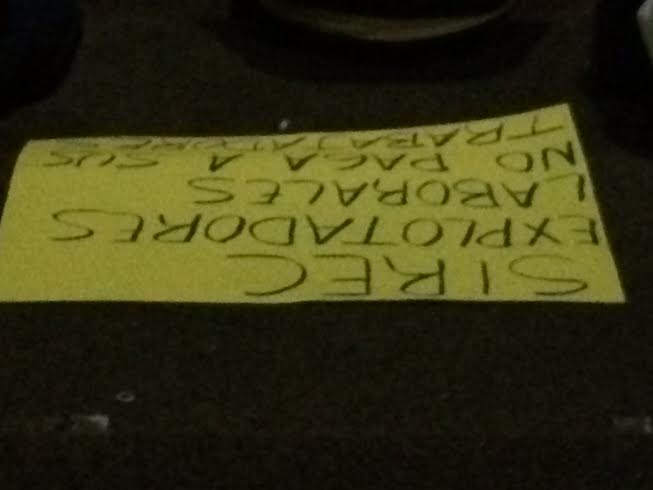 SIREC
EXPLOTADORES
LABORALES
NO PAGA A SUS
TRABAJADORES